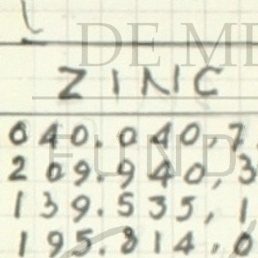 DE ME
ZINC
040.040,7
FUND
209.940,3
139.535,1
195.814,0